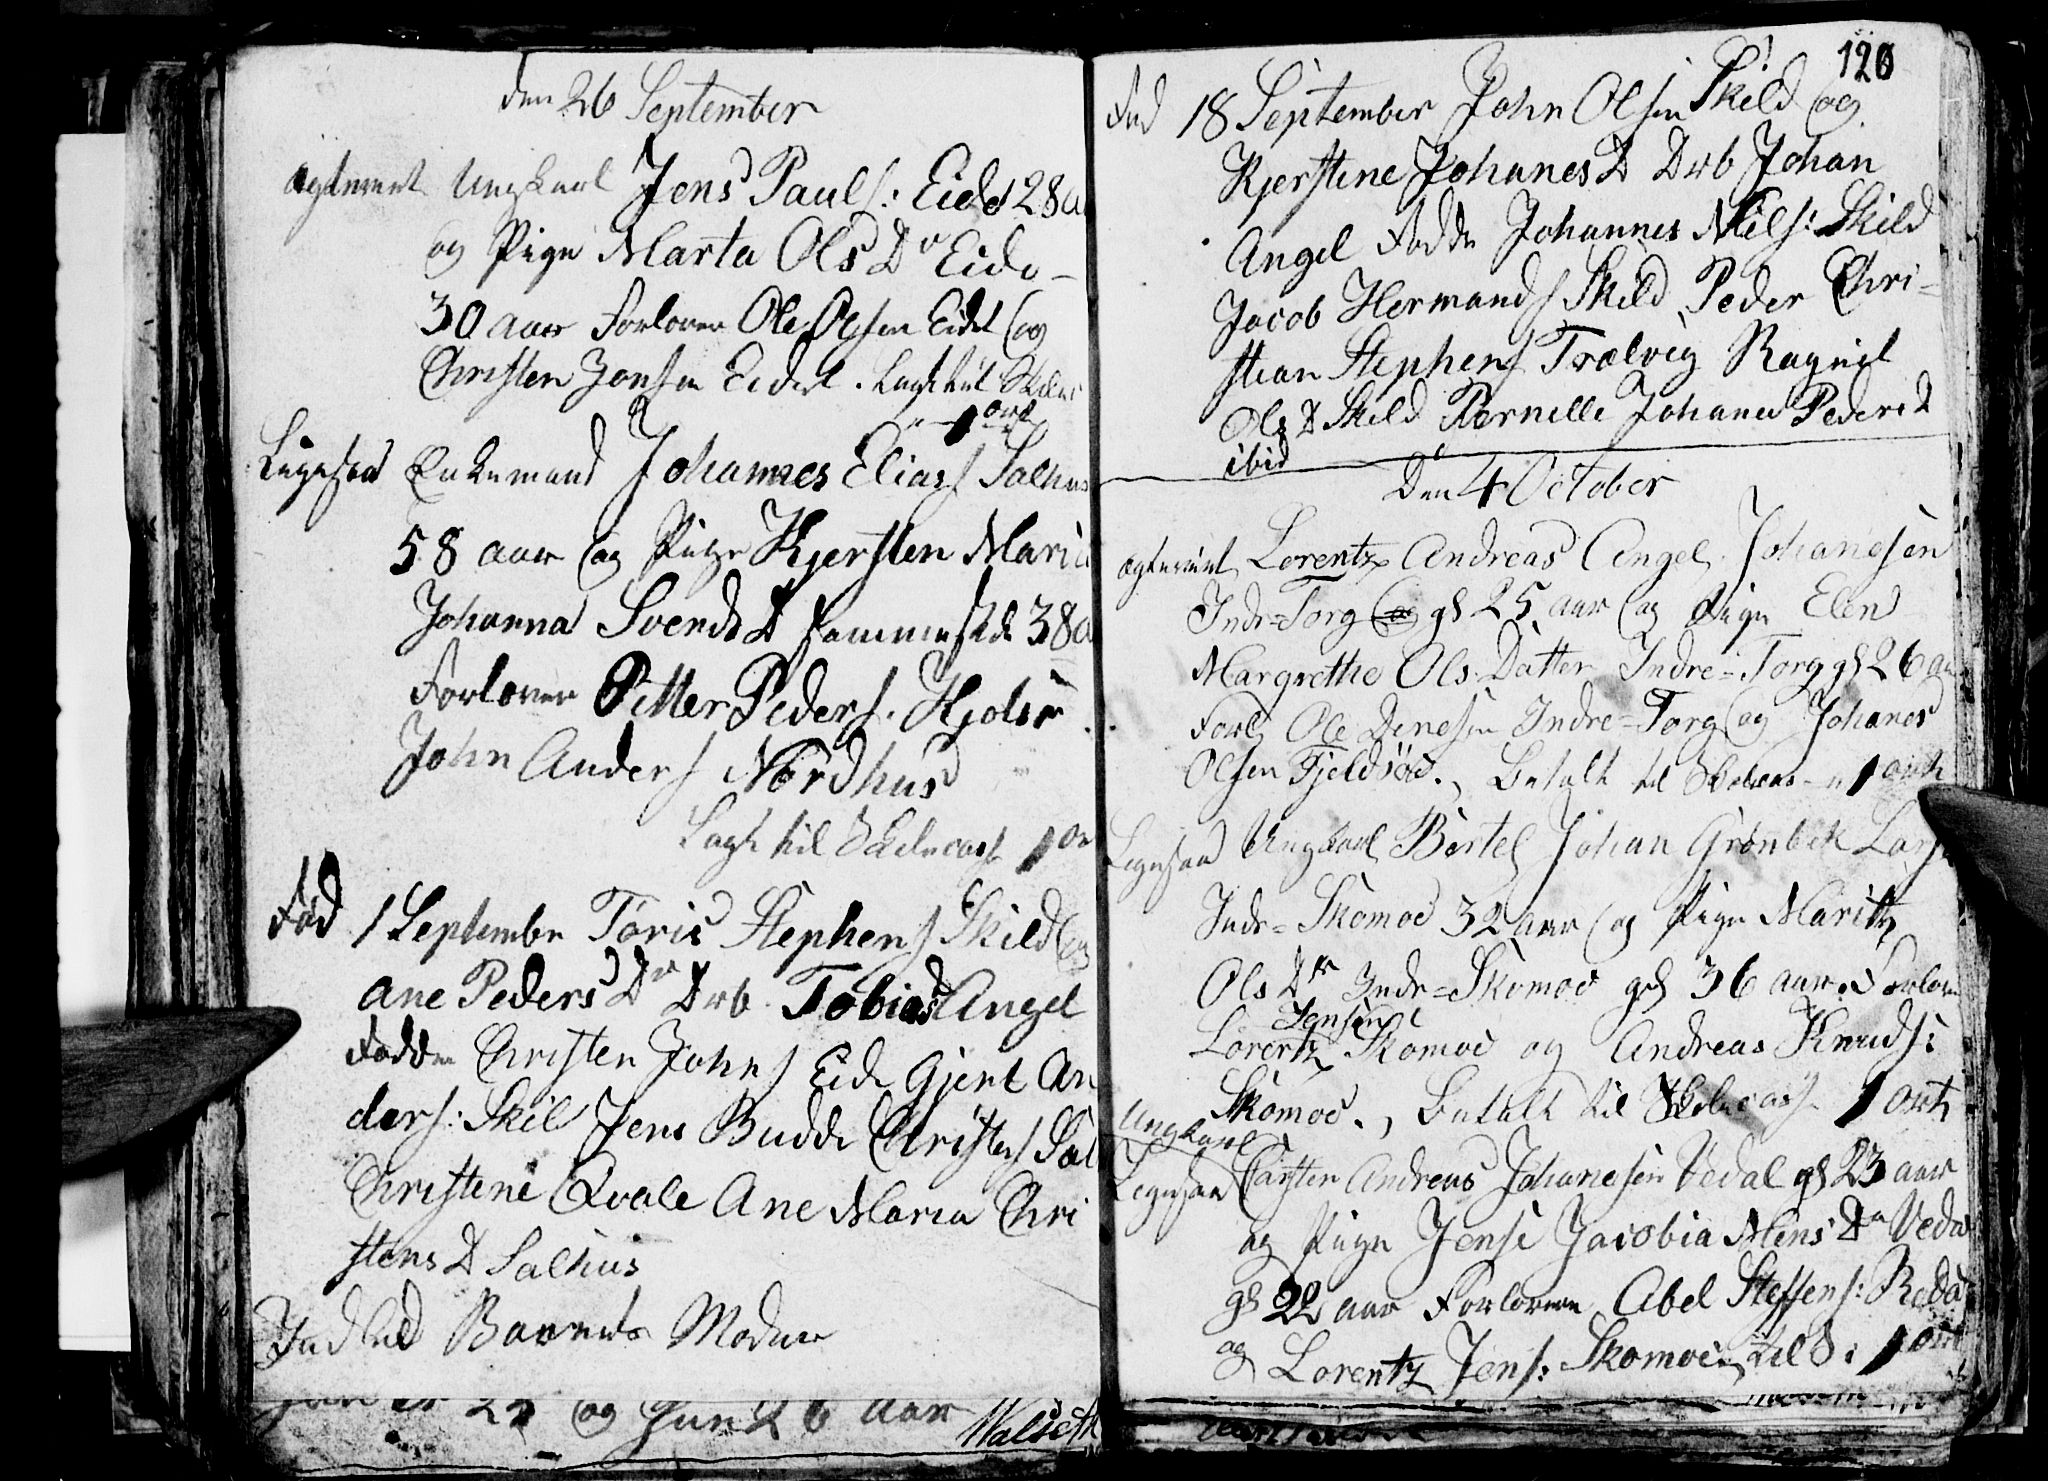 den 26 September
ægteviet Ungkarl Jens Pauls: Eide 28 a
og Pige Marta Ols Dr Eide
30 aar Forlover Ole Olsen Eidet og
Christen Jonsen Eidet. Lagt til Skolec
1 ort
Ligesaa Enkemand Johannes Eliass Salhus
58 aar og Pige Kjersten Maria
Johanna Svends D sammesteds 38 a
Forlover Petter Peders. Kjolsø
John Anders Nordhus
Lagt til Skolecass 1 or
Fød 1 September Toris Stephens Skild og
Ane Peders Dr Drb Tobias Angel
Fadde Christen Johns Eide Gjert An
ders: Skil Jens Budde Christens Sal
Christene Qvale Ane Maria Chri
stens D Salhus
Indled Barnets Moder
25 og hun 26 aar
Walseth
120
Fød 18 September John Olsen Skild og
Kjerstine Johanes D Drb Johan
Angel Fadde Johannes Niels: Skild
Jacob Hermands Skild Peder Chri-
stian Stephens Trælvig Ragnil
Ols D Skild Pernille Johanes Peders D
ibid
Den 4 October
ægteviet Lorentz Andreas Angel Johanesen
Indr=Torg og gl 25 aar og Pige Elen
Margrethe Ols Datter Indre=Torg gl 26 aa
Forl Ole Denesen Indre=Torg og Johanes
Olsen Fjeldsøe., Betalt til Skolecas 1 ort
Ligesaa Ungkarl Bertel Johan Grønbek Lars
Indr=Skomoe 32 aar og Pige Marith
Ols Dtr Indr=Skomoe gl 36 aar. Forlov
Jensen
Lorentz Skomoe og Andreas Knuds:
Skomoe., Betalt til Skolecass 1 ort
Ungkarl
Ligesaa Carsten Andreas Johanesen Vedal gl 23 aar
og Pige Jense Jacobia Mons Dr Veda
gl 22 aar Forlovere Abel Steffens: Reda
og Lorentz Jens: Skomoe, til S: 1 ort